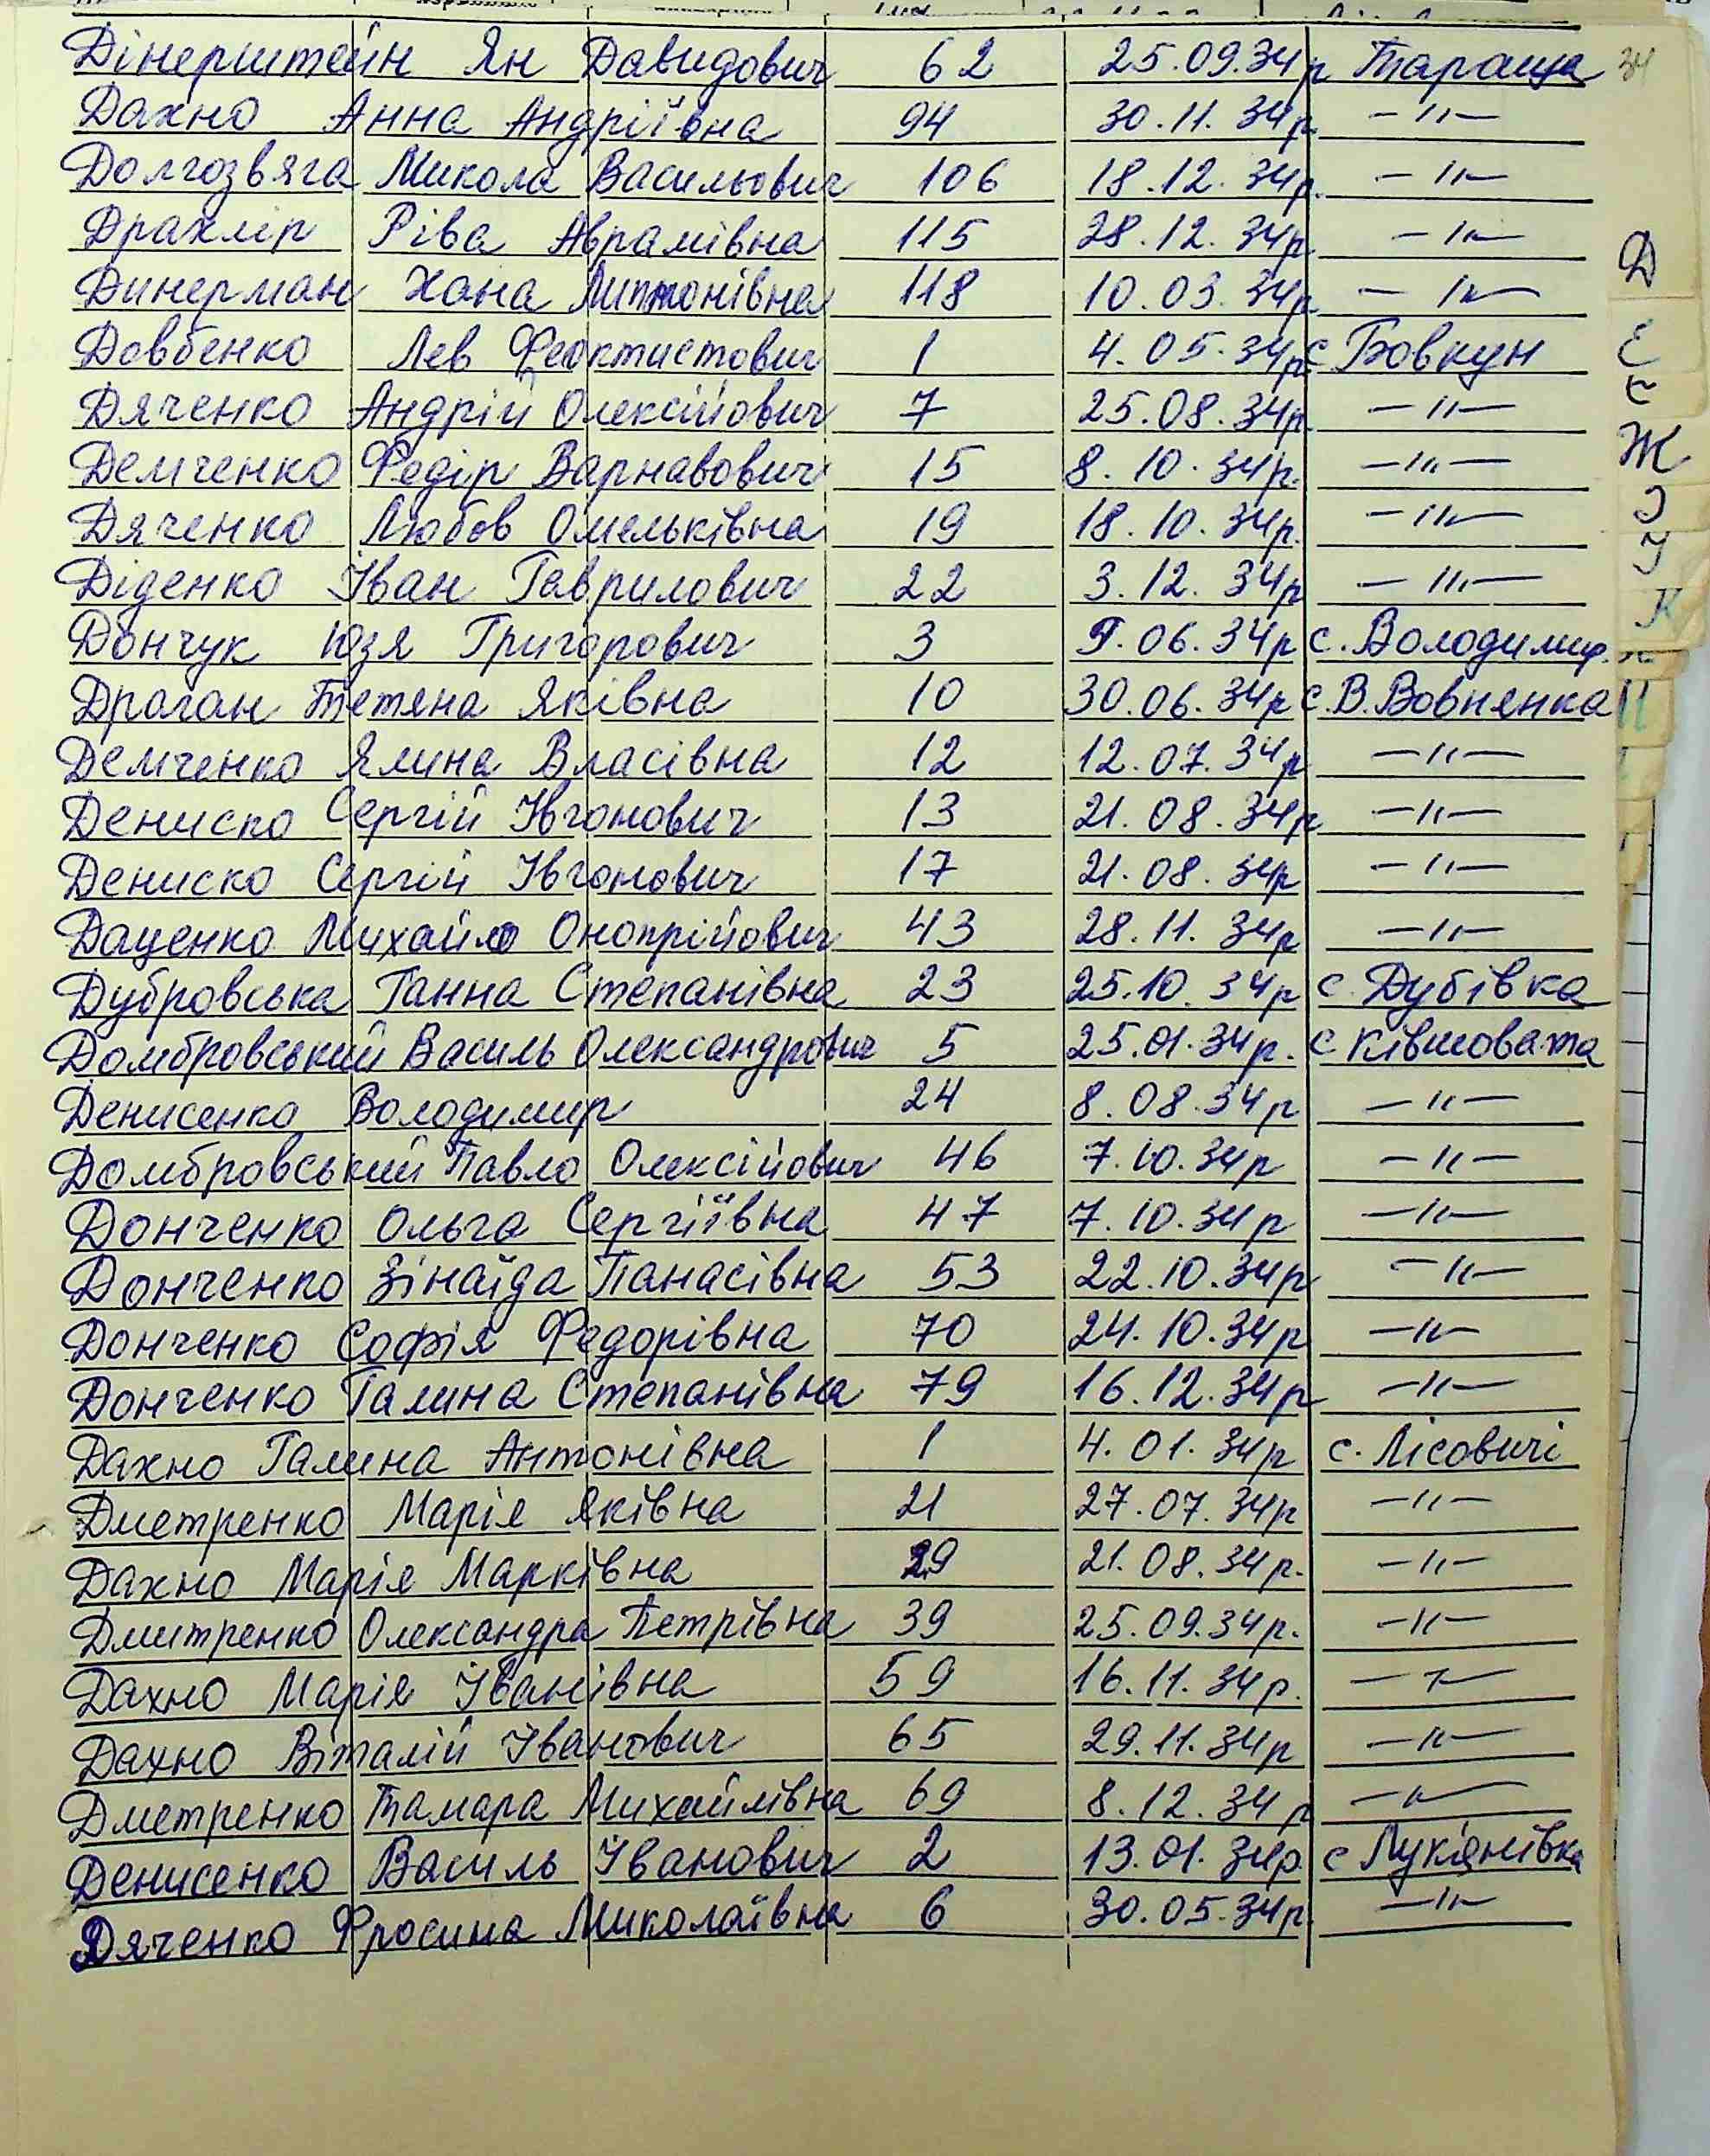 Дінерштейн Ян Давидович 62 25.09.34р Тараща 34
Дахно Анна Андріївна 94 30.11.34р. -"-
Долгозвяга Микола Васильович 106 18.12.34р. -"-
Драхлір Ріва Аврамівна 115 28.12.34р. -"-
Динерман Хана 118 10.03.34р. -"-
Довбенко Лев Феоктистович 1 4.05.34р. с Бовкун
Дяченко Андрій Олексійович 7 25.08.34р. -"-
Демченко Федір Варнавович 15 8.10.34р. -"-
Дяченко Любов Омельківна 19 18.10.34р. -"-
Діденко Іван Гаврилович 22 3.12.34р -"-
Дончук Юзя Григорович 3 9.06.34р с. Володимир.
Драган Тетяна Яківна 10 30.06.34р с. В. Вовнянка
Демченко Ялина Власівна 12 12.07.34р -"-
Дениско Сергій Івгонович 13 21.08.34р -"-
Дениско Сергій Івгонович 17 21.08.34р -"-
Даценко Михайло Онопрійович 43 28.11.34р -"-
Дубровська Ганна Степанівна 23 25.10.34р с. Дубівка
Домбровський Василь Олександрович 5 25.01.34р. с Ківшовата
Денисенко Володимир 24 8.08.34р -"-
Домбровський Павло Олексійович 46 7.10.34р -"-
Донченко Ольга Сергіївна 47 7.10.34р -"-
Донченко Зінаїда Панасівна 53 22.10.34р -"-
Донченко Софія Федорівна 70 24.10.34р -"-
Донченко Галина Степанівна 79 16.12.34р -"-
Дахно Галина Антонівна 1 4.01.34р с. Лісовичі
Дметренко Марія Яківна 21 27.07.34р -"-
Дахно Марія Марківна 29 21.08.34р. -"-
Дмитренко Олександра Петрівна 39 25.09.34р. -"-
Дахно Марія Іванівна 59 16.11.34р. -"-
Дахно Віталій Іванович 65 29.11.34р -"-
Дметренко Тамара Михайлівна 69 8.12.34р -"-
Денисенко Василь Іванович 2 13.01.34р. с Лук'янівка
Дяченко Фросина Миколаївна 6 30.05.34р. -"-
Д
Е
Є
Ж
З
І
К